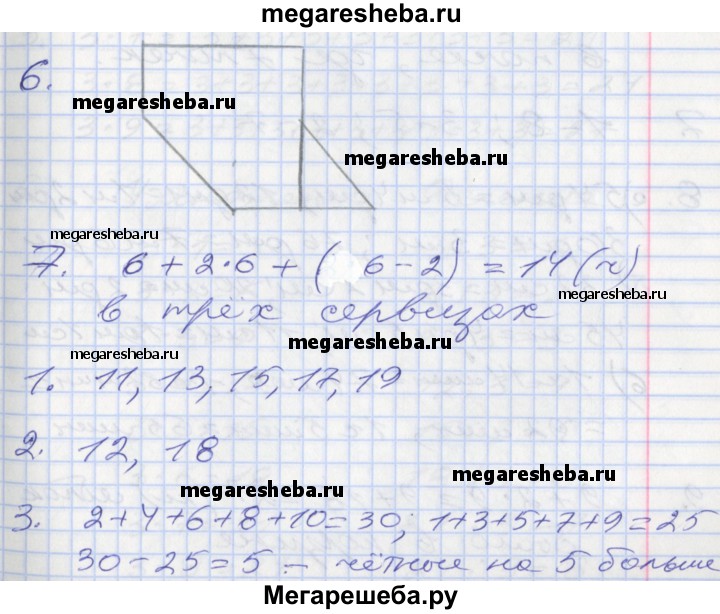 megaresheba.ru
6.
megaresheba.ru
megaresheba.ru
megaresheba.ru
7. 6 + 2·6 + ( 6 - 2) = 14 (ч)
megaresheba.ru
в трёх сервизах
megaresheba.ru
megaresheba.ru
1. 11, 13, 15, 17, 19
2. 12, 18
megaresheba.ru
megaresheba.ru
3. 2+4+6+8+10=30; 1+3+5+7+9=25
30-25=5 - чётные на 5 больше
Мегарешеба.ру